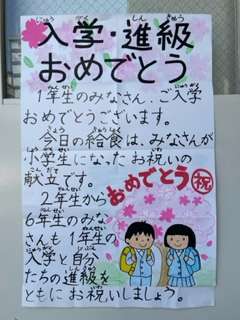 入学・進級
おめでとう
1年生のみなさん、ご入学
おめでとうございます。
今日の給食は、みなさんが
小学生になったお祝いの
献立です。
おめでとう㊗
2年生から
6年生のみな
さんも1年生の
入学と自分
たちの進級を
ともにお祝いしましょう。